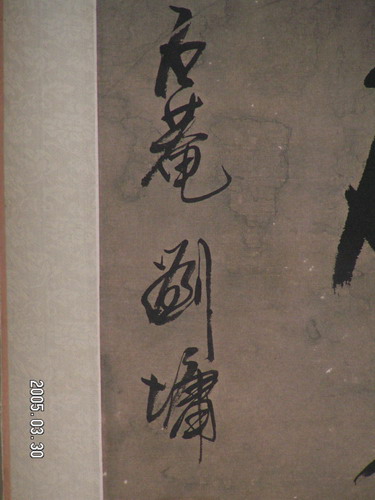 石菴劉墉
2005.03.30